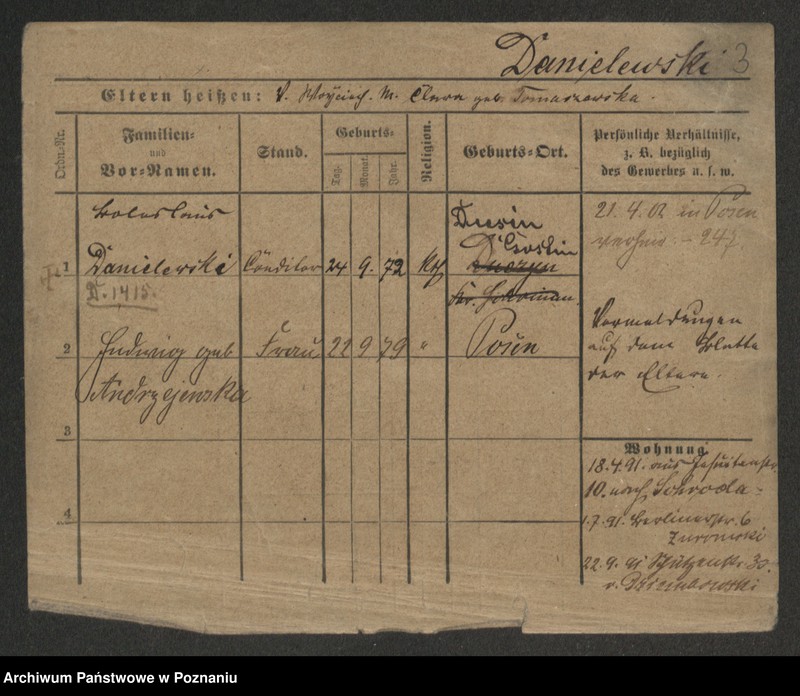 Danielewski 3
Eltern heißen: V. Woÿciech. M. Clara geb. Tomaszewska.
Ordn.-Nr.
Familien-
und
Vor-Namen.
Stand.
Geburts-
Tag.
Monat.
Jahr.
Religion.
Geburts-Ort.
Persönliche Verhältnisse,
z. B. bezüglich
des Gewerbes u. s. w.
Boleslaus
1 Danielewski Conditor 24 9. 72 Kth
D. 1415.
Dusin
Kr. Gostin
21. 4. 02 in Posen
verheir. - 247.
2 Hedwig geb Frau 22 9 79 " Posen
Andrzejewska
Vermeldungen
auf dem Blatte
der Eltern.
3
4
Wohnung.
18.4.91. aus Jesuitenstr
10. nach Schroda
1.7.91. Berlinerstr. 6
Zuromski
22.9.91 Schützenstr 30.
v. Dziembowski
Archiwum Państwowe w Poznaniu